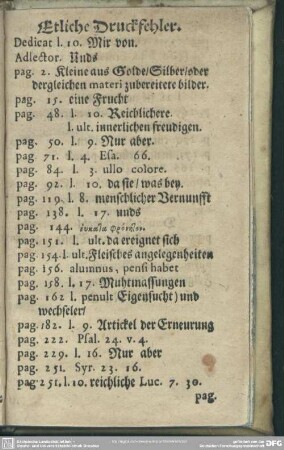 Etliche Druckfehler.
Dedicat l. 10. Mir von.
Adlector. Unds
pag. 2. Kleine aus Golde/Silber/oder
dergleichen materi zubereitete bilder.
pag. 15. eine Frucht
pag. 48. l. 10. Reichlichere.
l. ult. innerlichen freudigen.
pag. 50. l. 9. Nur aber.
pag. 71. l. 4. Esa. 66.
pag. 84. l. 3. ullo colore.
pag. 92. l. 10. da sie/ was bey.
pag. 119. l. 8. menschlicher Vernunfft
pag. 138. l. 17. unds
pag. 144.
pag. 151. l. ult. da ereignet sich
pag. 154. l. ult. Fleisches angelegenheiten
pag. 156. alumnus, pensi habet
pag. 158. l. 17. Muhtmassungen
pag. 162 l. penult (Eigensucht) und
wechseler/
pag. 182. l. 9. Artickel der Erneurung
pag. 222. Psal. 24. v. 4.
pag. 229. l. 16. Nur aber
pag. 251. Syr. 23. 16.
pag 251. l. 10. reichliche Luc. 7. 30.
pag.